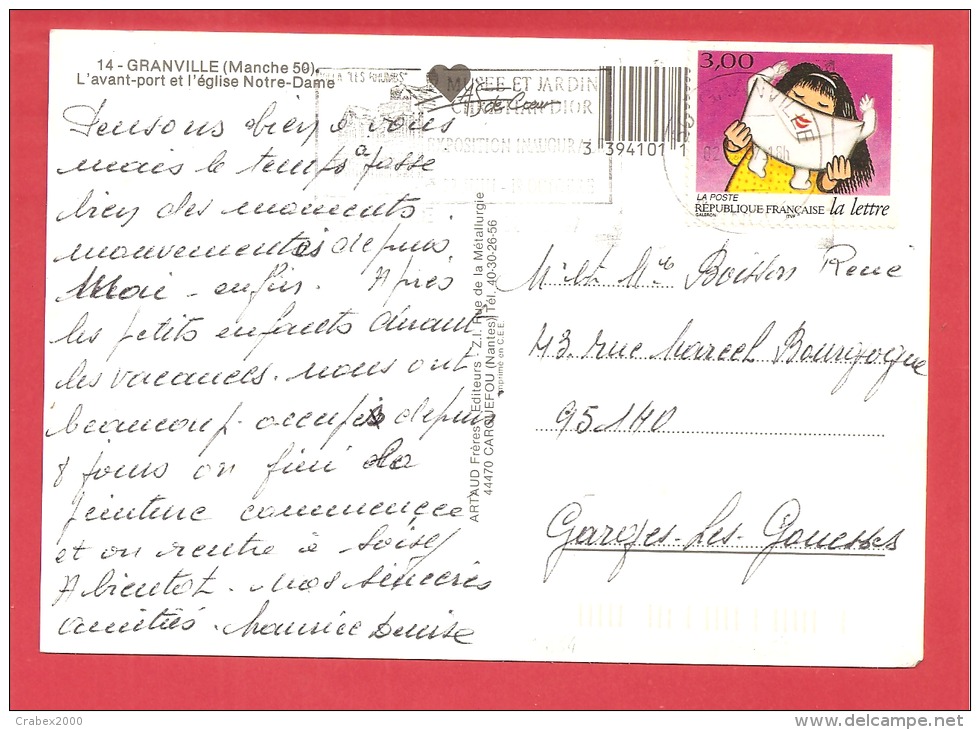 14 - GRANVILLE (Manche 50)
L'avant-port et l'église Notre-Dame
Pensons bien à vous
mais le temps a passe
bien des moments
mouvementés depuis
Mai - enfin. Après
les petits enfants durant
les vacances. nous ont
beaucoup occupés depuis
8 jours on fini la
peinture commencée
et on rentre à Soisy
A bientot. nos sincères
amitiés. Maurice Denise
ARTAUD Frères, Editeurs - Z.I. Rue de la Métallurgie
44470 CARQUEFOU (Nantes) Tél. 40-30-26-56
Imprimé en C.E.E.
VILLA "LES RHUMBS"
MUSEE ET JARDIN
CHRISTIAN DIOR
EXPOSITION INAUGURALE
As de Coeur
3 394101 1
3,00
LA POSTE
RÉPUBLIQUE FRANÇAISE la lettre
Mr et Me Boisson René
43. rue Marcel Bourgogne
95140
Garges-Les-Gonesses
Crabex2000